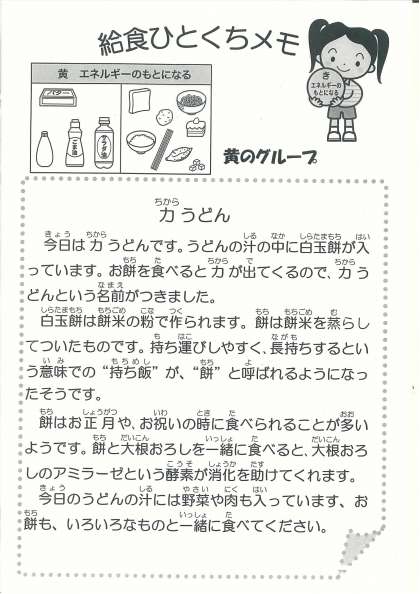 給食ひとくちメモ
黄 エネルギーのもとになる
バター
ごま油
サラダ油
き
エネルギーの
もとになる
黄のグループ
力うどん
今日は力うどんです。うどんの汁の中に白玉餅が入
っています。お餅を食べると力が出てくるので、力う
どんという名前がつきました。
白玉餅は餅米の粉で作られます。餅は餅米を蒸らし
てついたものです。持ち運びしやすく、長持ちするとい
う意味での“持ち飯”が、“餅”と呼ばれるようになっ
たそうです。
餅はお正月や、お祝いの時に食べられることが多い
ようです。餅と大根おろしを一緒に食べると、大根おろ
しのアミラーゼという酵素が消化を助けてくれます。
今日のうどんの汁には野菜や肉も入っています、お
餅も、いろいろなものと一緒に食べてください。